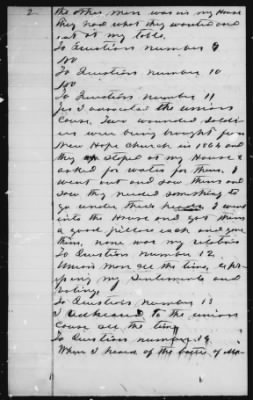 2
the other man was in my House
they had what they wanted and
eat at my table.
To Question number 9
No
To Question number 10
No
To Question number 11
Yes I assisted the union
Cause, Two wounded Soldi
ers were being brought from
New Hope church in 1864 and
they stoped at my House &
asked for water for them. I
went out and saw them and
saw they needed something to
go under their heads, I went
into the House and got them
a good pillow each and gave
them, none was my relatives
To Question number 12
Union men all the time, exp
sing my Sentiments and
voting.
To Question number 13
I adheared to the union
cause all the time
To Question number 14
When I heard of the battle of Ma-